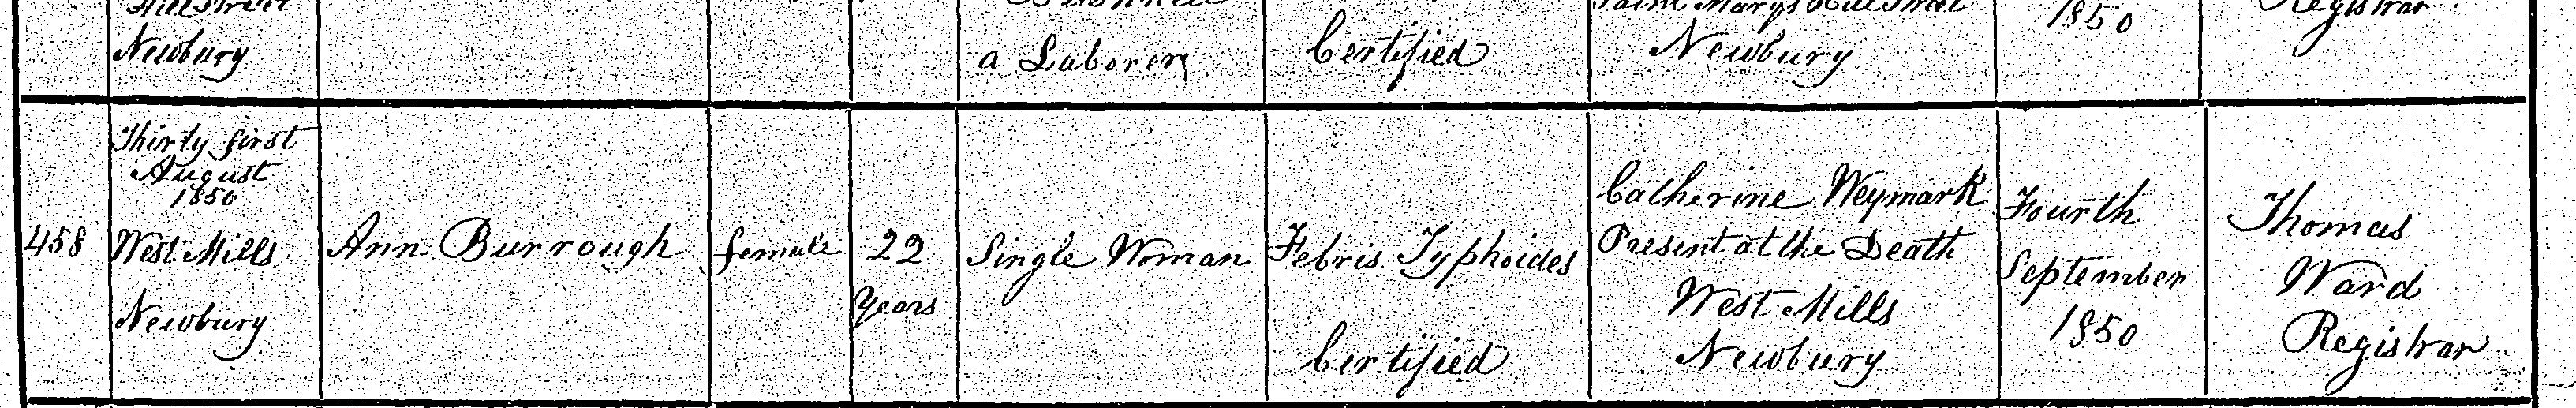 Newbury
a Laborer
Certified
Newbury
1850
Registrar
458
Thirty first
August
1850
West Mills
Newbury
Ann Burrough
female
22
Years
Single Woman
Febris Typhoides
Certified
Catherine Weymark
Present at the Death
West Mills
Newbury
Fourth
September
1850
Thomas
Ward
Registrar